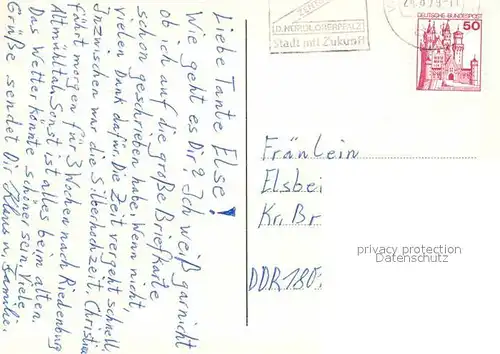 Liebe Tante Else!
Wie geht es Dir? Ich weiß garnicht
ob ich auf die große Briefkarte
schon geschrieben habe, Wenn nicht,
vielen Dank dafür. Die Zeit vergeht schnell,
Inzwischen war die Silberhochzeit. Christian
fährt morgen für 3 Wochen nach Riedenburg
Altmühltal. Sonst ist alles beim alten.
Das Wetter könnte schöner sein, Viele
Grüße sendet Dir Klaus u. Familie.
I.D. NÖRDL. OBERPFALZ
Stadt mit Zukunft
DEUTSCHE BUNDESPOST
50
Fräulein
Elsbei
Kr. Br
DDR 180
privacy protection
Datenschutz